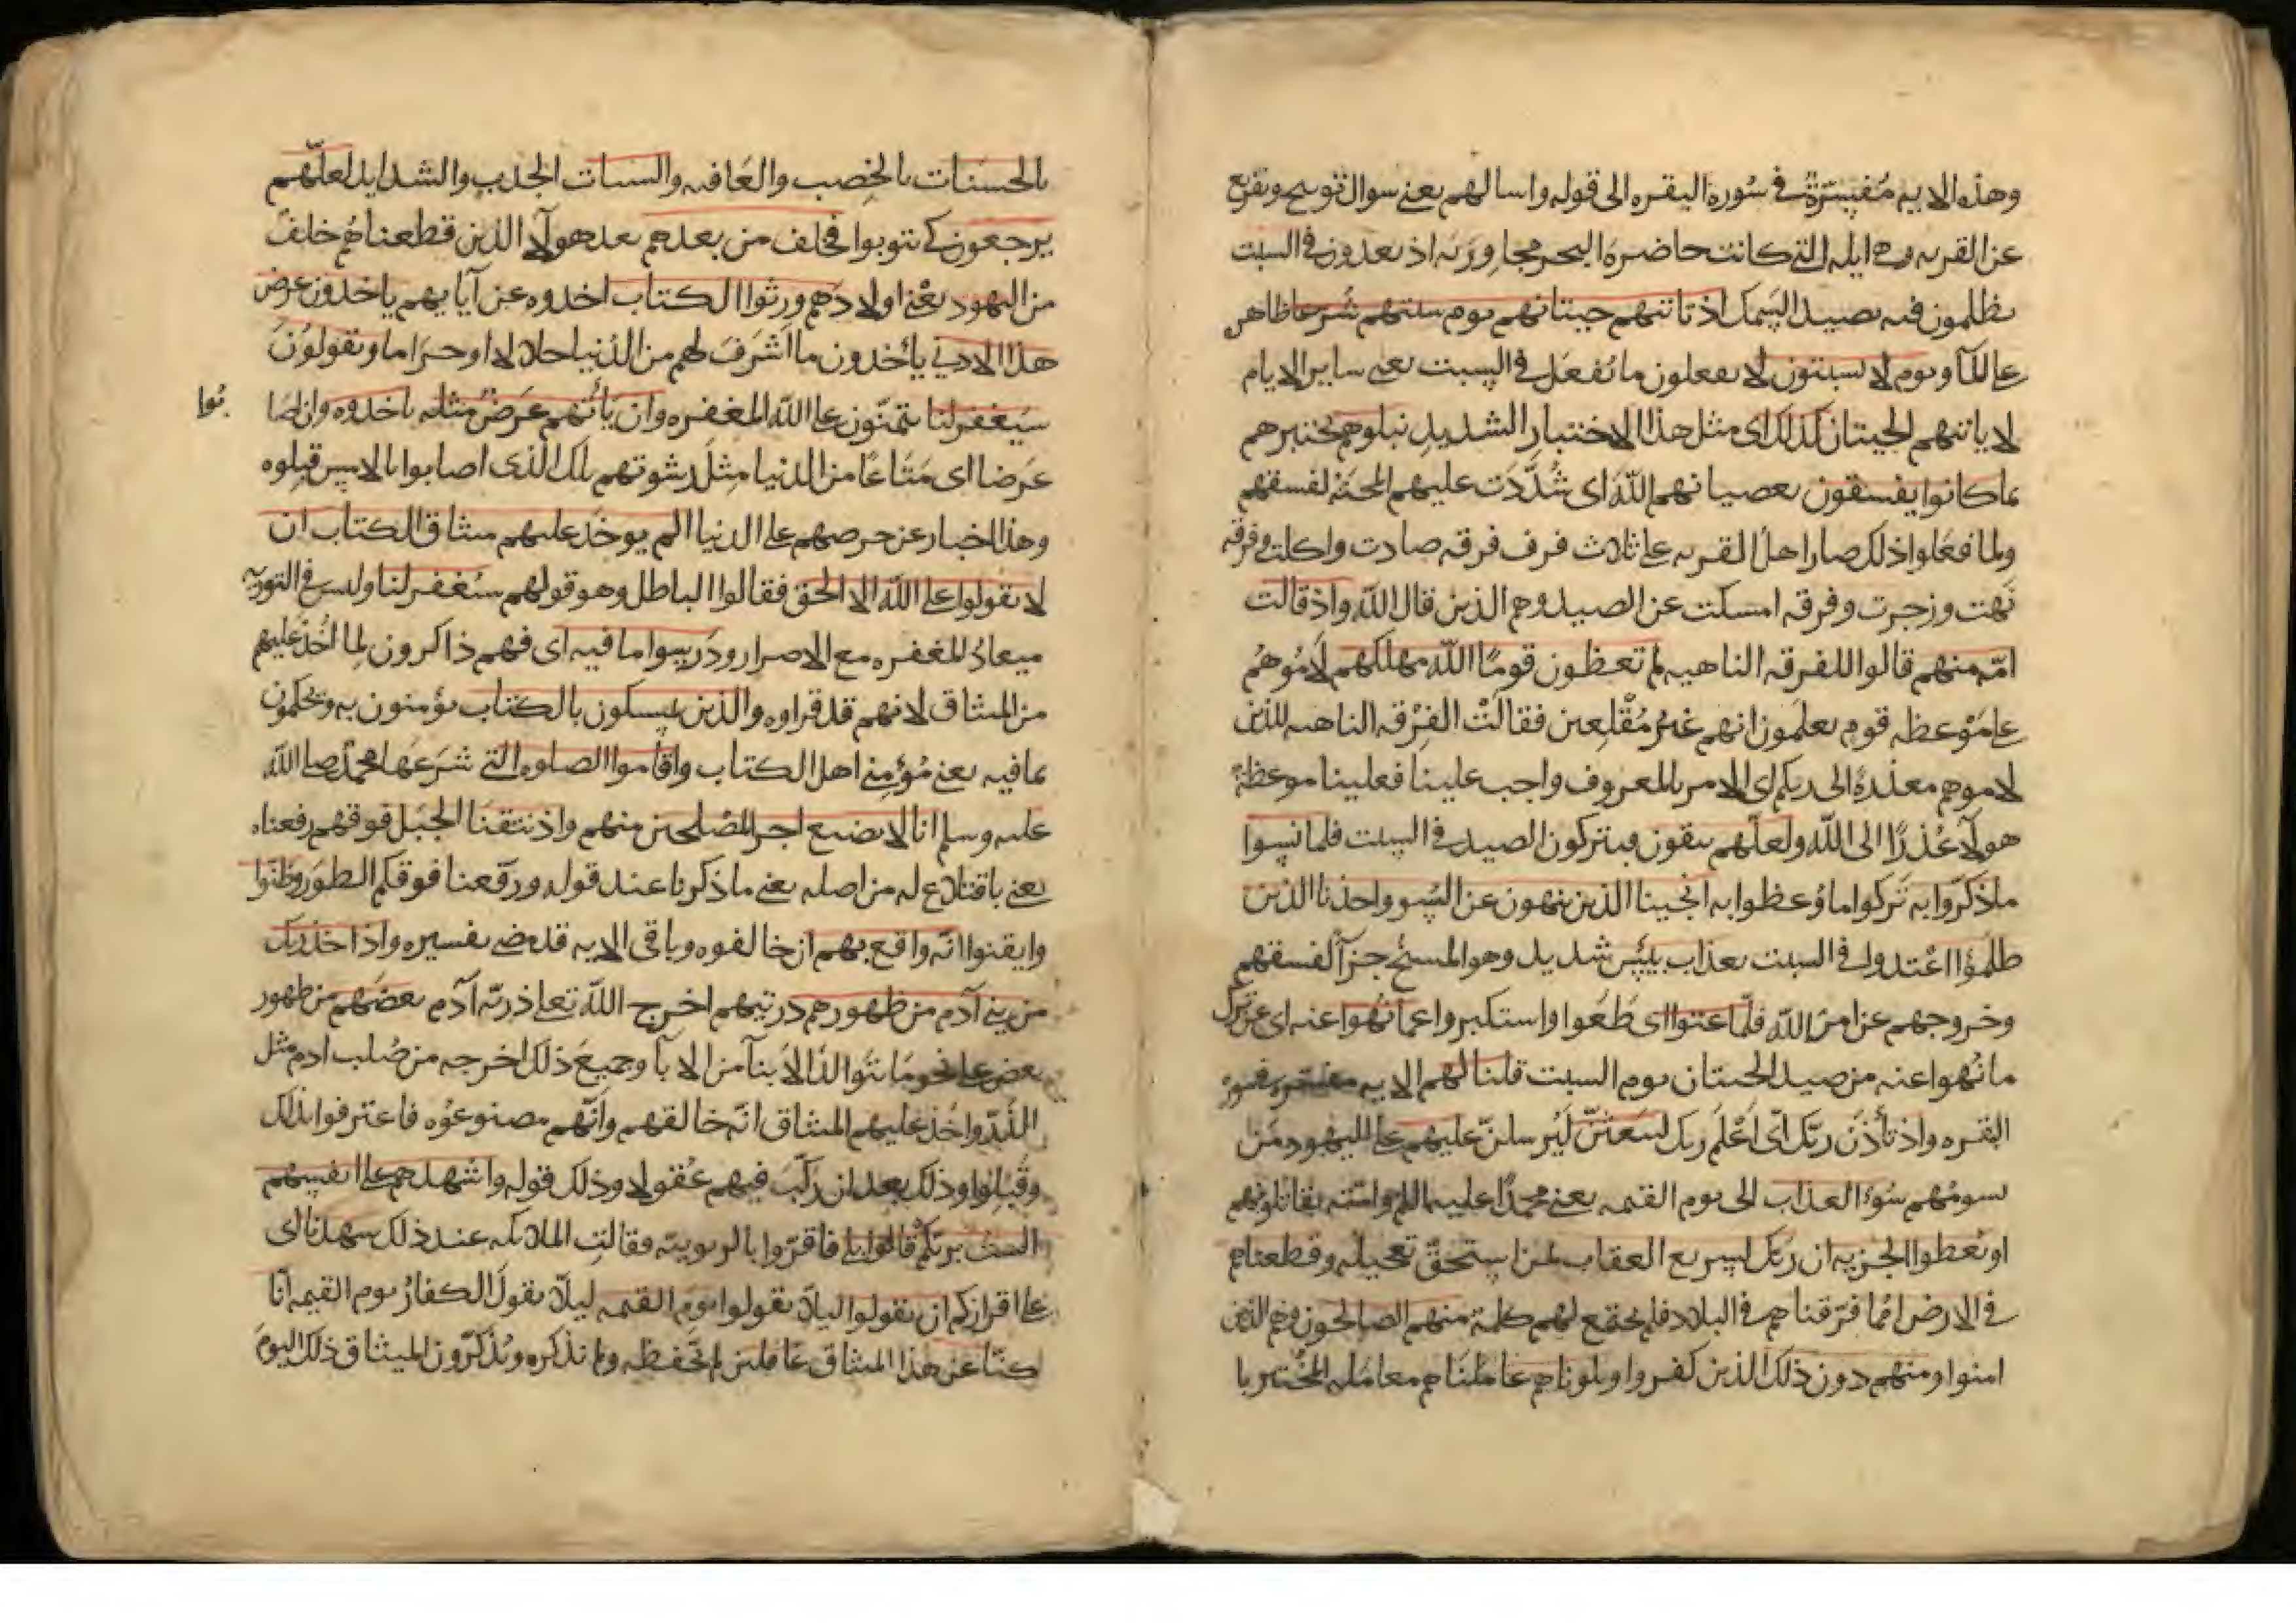 وهذه الايه مُفسّرةٌ في سُوره البقره الى قوله واسالهم يعنى سوال توبيخ وتقريع
عن القريه وهى ايله التى كانت حاضرة البحر مجاورته اذ يعدون فى السبت
يظلمون فيه بصيد السمك اذ تاتيهم حيتانهم يوم سبتهم شُرعا ظاهره
على الماء ويوم لا يسبتون لا يفعلون ما يُفعل فى السبت يعنى ساير الايام
لا ياتيهم الحيتان كذلك اى مثل هذا الاختبار الشديد نبلوهم نختبرهم
بما كانوا يفسقون بعصيانهم الله اى شُدّدت عليهم المحنة لفسقهم
ولما فعلوا ذلك صار اهل القريه على ثلاث فرق فرقه صادت واكلت وفرقه
نهت وزجرت وفرقه امسكت عن الصيد وهم الذين قال الله واذ قالت
امّه منهم قالوا للفرقه الناهيه لم تعظون قومًا الله مهلكهم لامُوهُم
على مَوْعظه قوم يعلمون انهم غيرُ مُقْلِعين فقالتْ الفِرْقه الناهيه للذين
لاموهم معذرةً الى ربكم اى الامر بالمعروف واجب علينا فعلينا موعظةُ
هولآء عُذرًا الى الله ولعلّهم يتقون فيتركون الصيد فى السبت فلما نسوا
ما ذكّروا به تَركوا ما وُعظوا به انجينا الذين ينهون عن السُوء واخذنا الذين
ظلمُوا اعْتدوا فى السبت بعذاب بئيس شديد وهو المسخُ جزآءً لفسقهم
وخروجهم عن امرِ الله فلمّا عتوا اى طَغَوا واستكبروا عما نُهوا عنه اى عن ترك
ما نُهوا عنه من صيد الحيتان يوم السبت قلنا لهم الايه مفسّره فى سورة
البقره واذ تأذّنَ ربّك اى اَعْلَم ربك ليبعثنّ ليُرسلنّ عليهم على اليهود مَن
يسومُهم سُوءَ العذاب الى يوم القيمه يعنى محمدًا عليه السلام وامّته يقاتلونهم
او يُعطوا الجزيه ان ربّك لسريع العقاب لمن استحقّ تعجيله وقطعناهم
فى الارض اُمما فرّقناهم فى البلاد فلم يجتمع لهم كلمة منهم الصالحون وهم الذين
امنوا ومنهم دون ذلك الذين كفروا وبلوناهم عاملناهم معاملة المختبر با
بالحسنات بالخِصب والعَافيه والسيات الجدب والشدايد لعلّهم
يرجعون كى يتوبوا فخلف من بعدهم بعد هولآء الذين قطعناهُم خلفٌ
من اليهود يعْنى اولادَهم ورثوا الكتاب اخذوه عن آبايهم ياخذون عَرَض
هذا الادنى يأخذون ما اَشرَفَ لهم من الدُنيا حلالا او حرَاما ويقولوُنَ
سيُغفر لنا يتمنّون على الله المغفره وان يَأتهم عَرَضٌ مثله ياخذوه وان اصا
بُوا
عَرضا اى مَتَاعًا من الدنيا مِثلَ رشوتهم تلك الذى اصابوا بالامس قبِلوه
وهذا اخبار عن حرصهم على الدنيا الم يوخَذ عليهم ميثاق الكتاب ان
لا يقولوا على الله الا الحق فقالوا الباطل وهو قولهم سيُغفر لنا وليس فى التوريه
ميعادُ المغفره مع الاصرار ودَرَسوا ما فيه اى فهم ذاكرون لِما اُخذ عليهم
من الميثاق لانهم قد قراوه والذين يمسكون بالكتاب يؤمنون به ويحكمون
بما فيه يعنى مُؤمِنى اهل الكتاب واقاموا الصلوه التى شَرَعَها محمدٌ صلى الله
عليه وسلم انا لا نضيع اجر المُصْلحين منهم واذ نتقنَا الجبَل فوقهم رفعناه
يعنى باقتلاع له من اصله يعنى ما ذكرنا عند قوله ورفّعنا فوقكم الطورَ وظنّوا
وايقنوا انّه واقع بهم ان خالفوه وباقى الايه قد مضى تفسيره واذ اخذ ربّك
من بنى آدم من ظهورهم ذريتهم اخرج الله تعالى ذريّه آدم بعضَهم من ظهور
بعض على نحو مَا يتَوالدُ الاَبنآء من الابآء وجميعَ ذلك اخرجه من صُلب ادم مثل
الذَّرّ واَخَذ عليهم الميثاق انّه خالقهم وانّهم مصنوعُوه فاعترفوا بذلك
وقَبِلوا وذلك بعد ان ركّبَ فيهم عُقولا وذلك قوله واشهدهم على انفسهم
الستُ بربّكم قالوا بلى فاقرّوا بالربوبيّه فقالتِ الملايكه عند ذلك شهدنا اى
على اقراركم ان يقولوا ليلّا يقولوا يومَ القيمه ليلّا يقولَ الكفارُ يوم القيمه اِنّا
كنّا عن هذا الميثاق غافلين لم نحفظه ولم نذكره ويُذكّرون الميثاق ذلك اليومَ